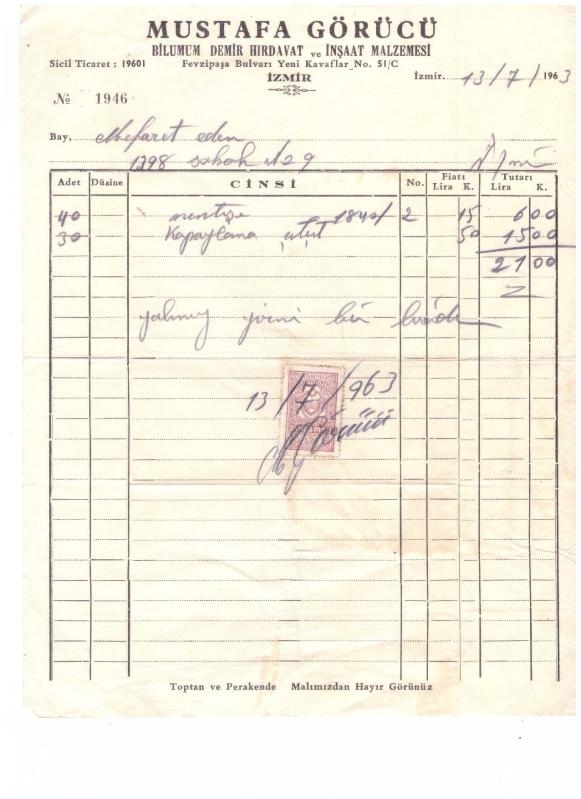 MUSTAFA GÖRÜCÜ
BİLUMUM DEMİR HIRDAVAT ve İNŞAAT MALZEMESİ
Sicil Ticaret : 19601 Fevzipaşa Bulvarı Yeni Kavaflar No. 51/C
İZMİR
İzmir. 13/7/1963
№ 1946
Bay, Mefaret eden
1398 sokak N29
Adet Düzine CİNSİ No. Fiatı Lira K. Tutarı Lira K.
40 menteşe 1840/ 2 15 600
30 Kapaylama 50 1500
2100
yalınız yirmi bir liradır
13/7/963
Toptan ve Perakende Malımızdan Hayır Görünüz